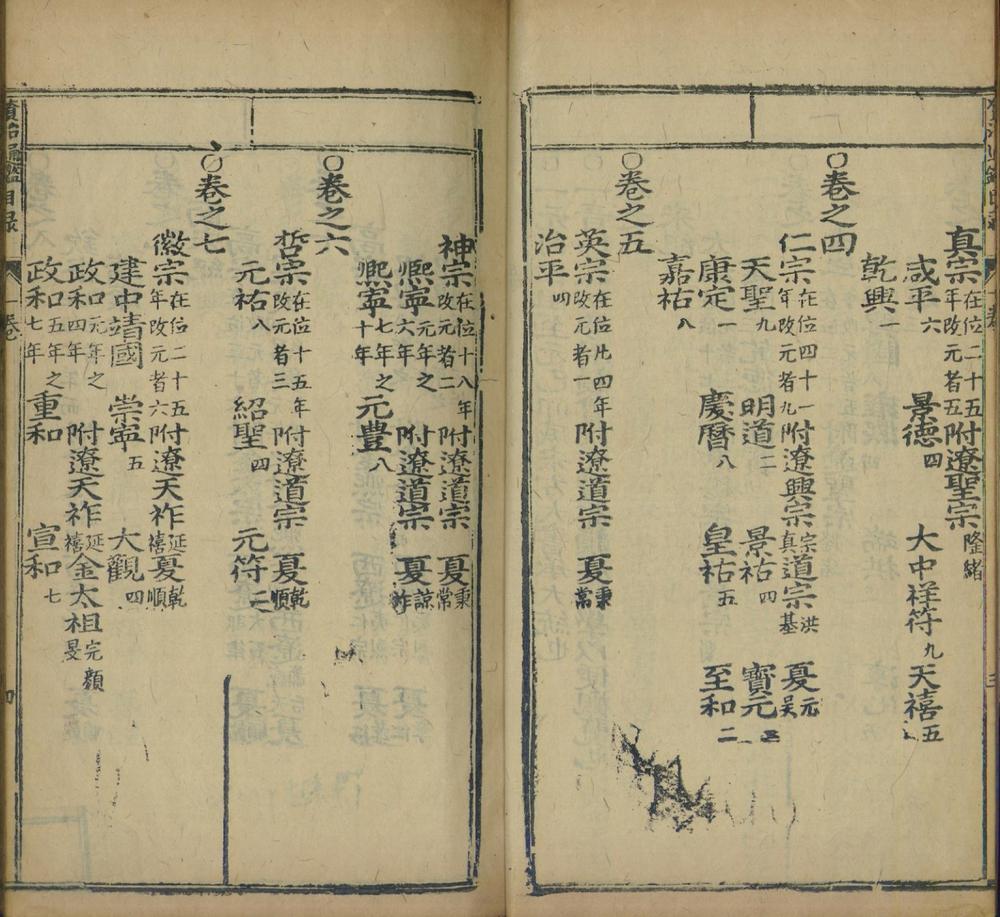 真宗在位二十五年改元者五附遼聖宗隆緒
咸平六 景德四 大中祥符九 天禧五
乾興一
○卷之四
仁宗在位四十一年改元者九附遼興宗宗真道宗洪基 夏元昊
天聖九 明道二 景祐四 寶元
康定一 慶曆八 皇祐五 至和二
嘉祐八
○卷之五
英宗在位凡四年改元者一附遼道宗 夏秉常
治平四
神宗在位十八年改元者二附遼道宗 夏秉常
熈寧元年之六年 附遼道宗 夏諒祚
熈寧七年之十年 元豊八
○卷之六
哲宗在位十五年改元者三附遼道宗 夏乾順
元祐八 紹聖四 元符二
○卷之七
徽宗在位二十五年改元者六附遼天祚延禧夏乾順
建中靖國 崇寧五 大觀四
政和元年之四年 附遼天祚延禧金太祖完顏旻
政和五年之七年 重和 宣和七
資治通鑑目录